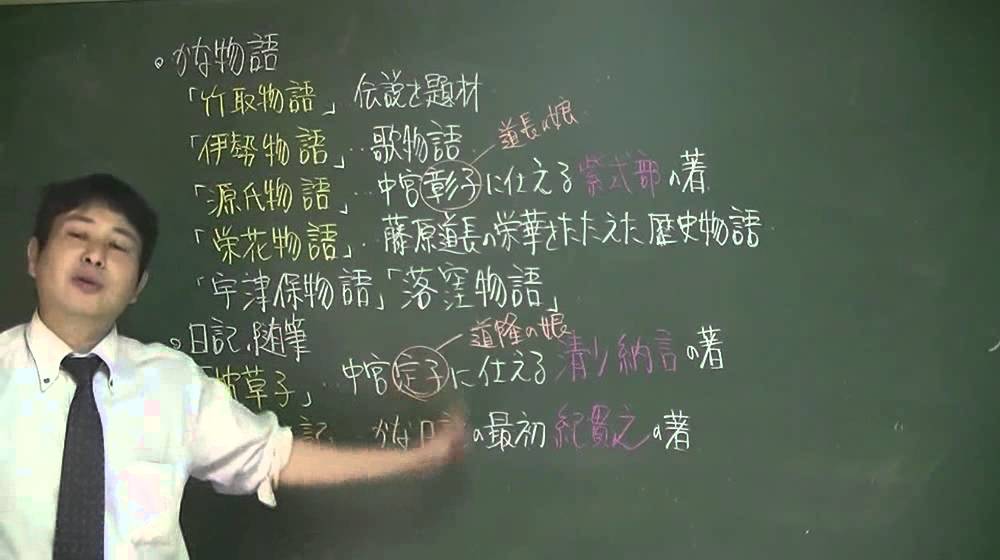 。かな物語
「竹取物語」 伝説を題材
「伊勢物語」…歌物語
道長の娘
「源氏物語」…中宮彰子に仕える紫式部の著
「栄花物語」…藤原道長の栄華をたたえた歴史物語
「宇津保物語」「落窪物語」
。日記、随筆
道隆の娘
枕草子」…中宮定子に仕える清少納言の著
記 かな日 の最初 紀貫之の著